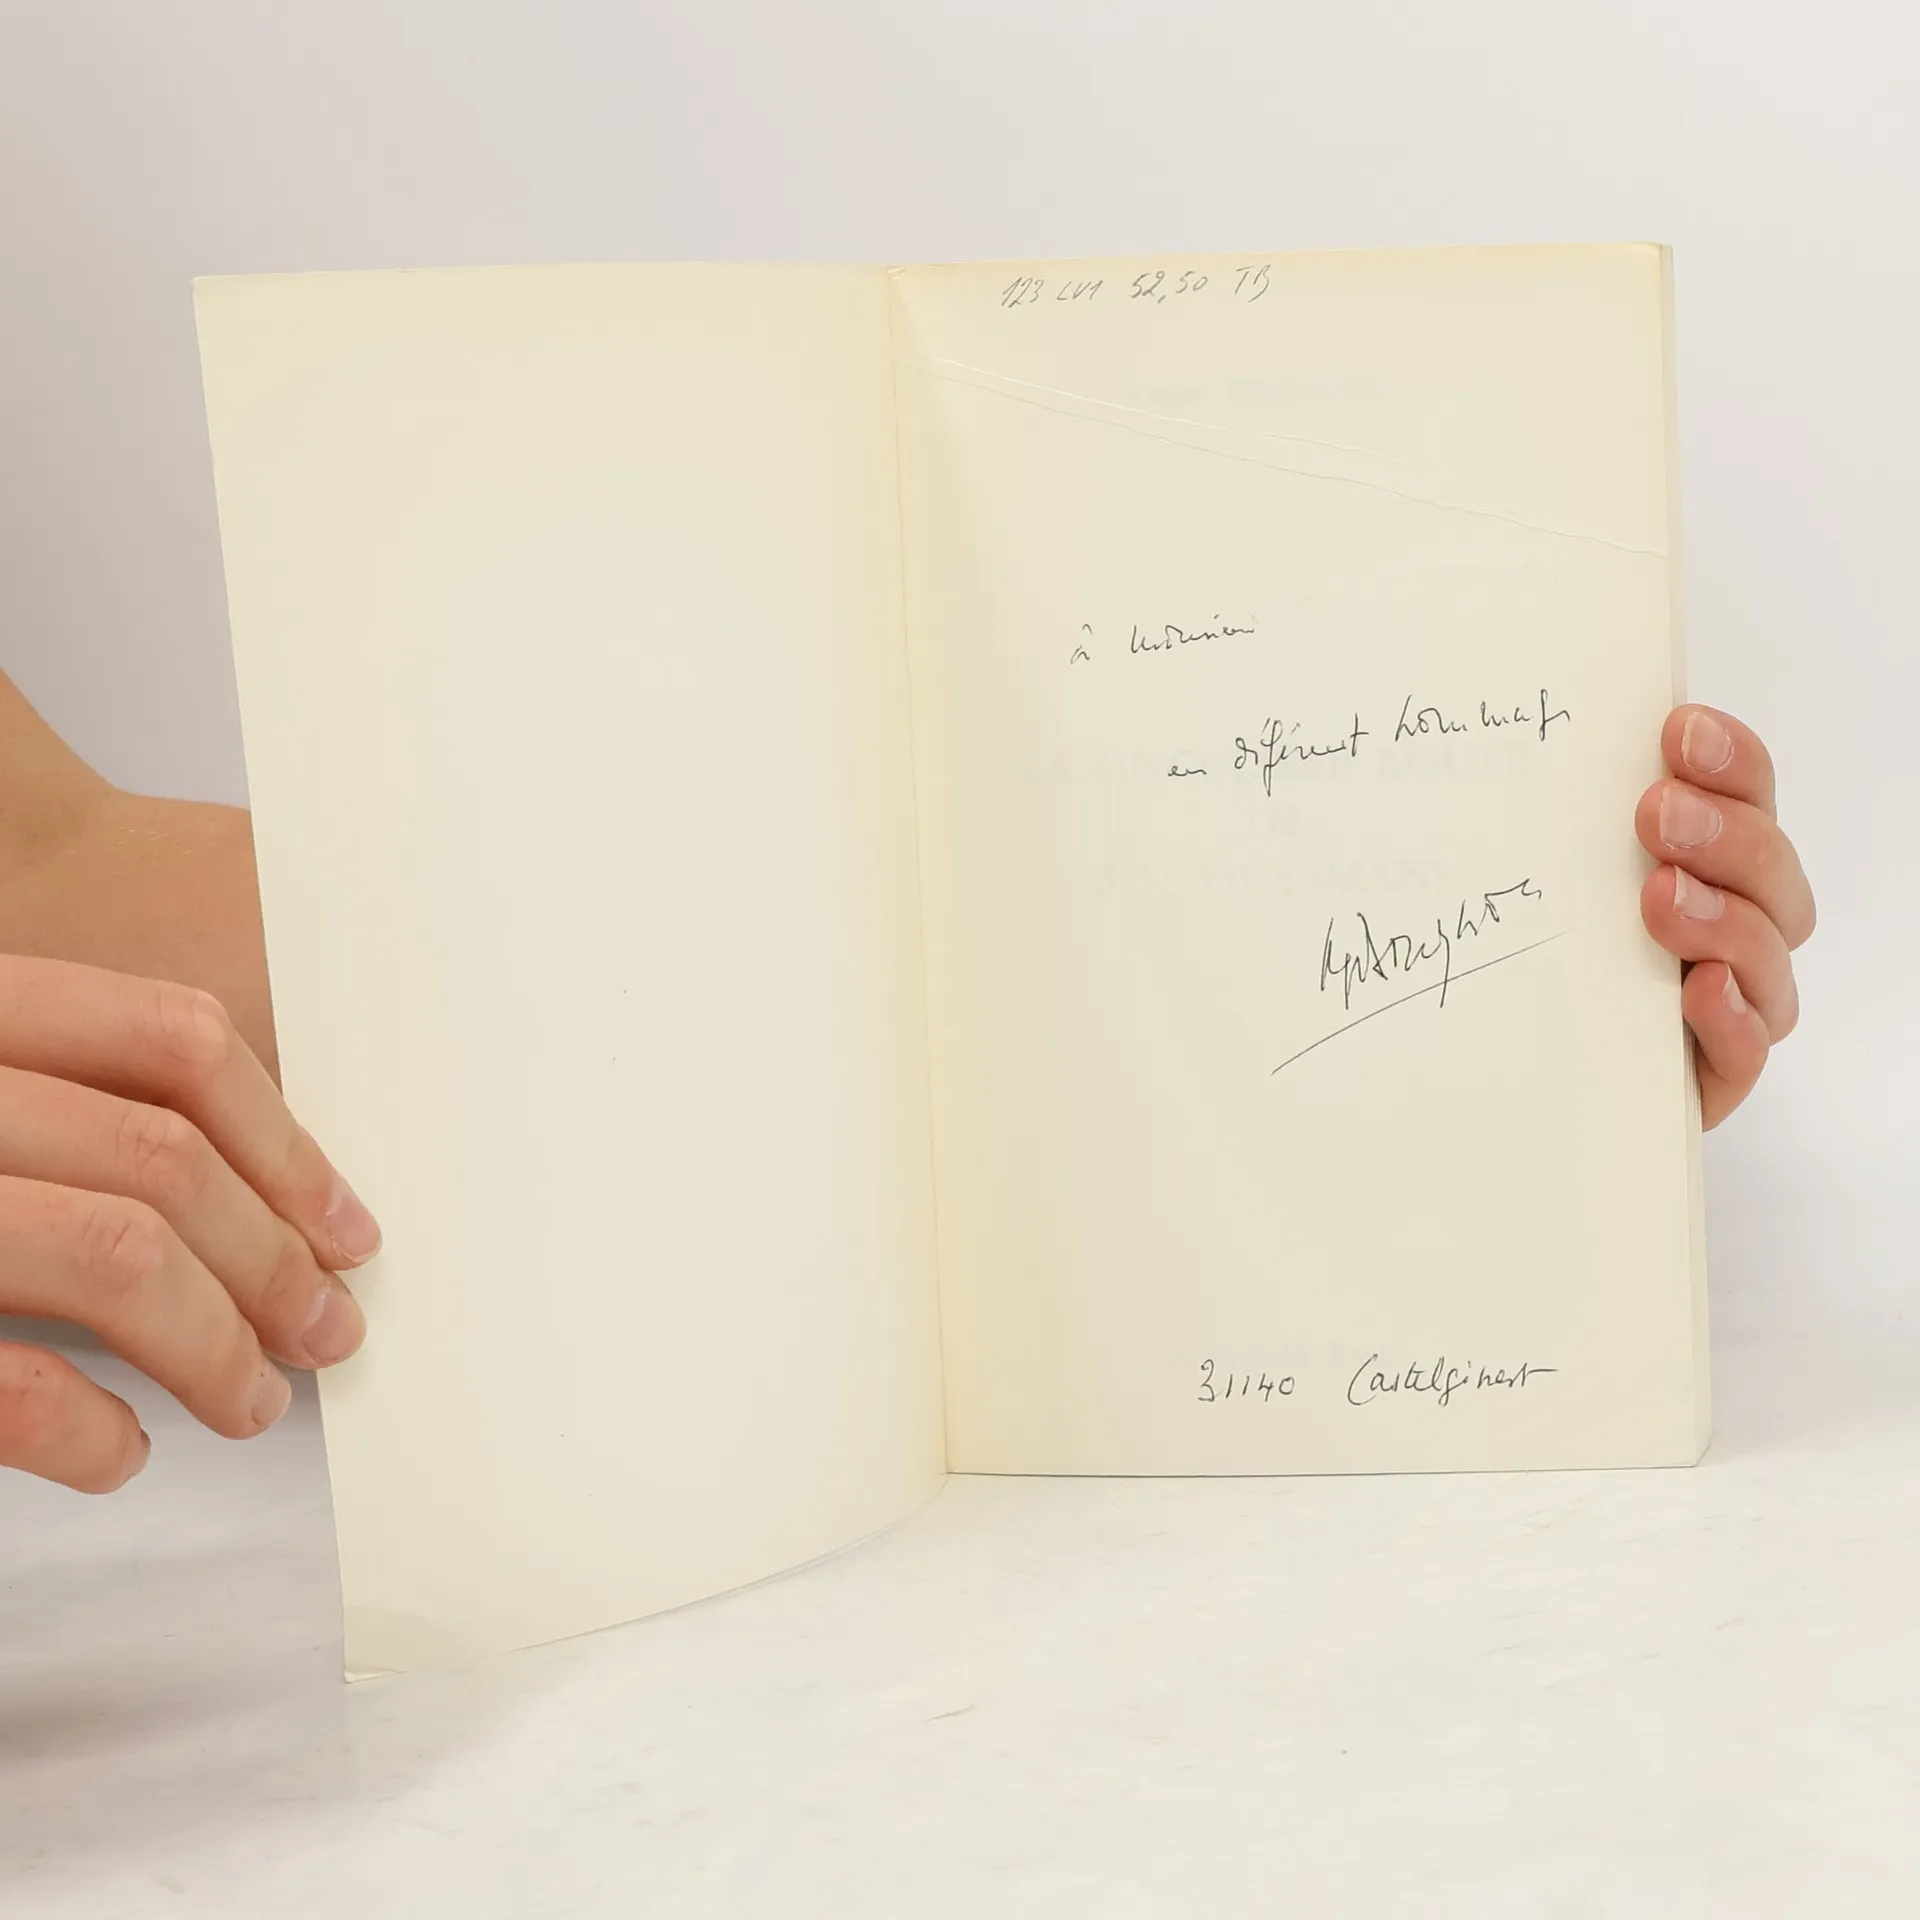 123 LV1 52,50 TB
à Monsieur
en déférent hommage
31140 Castelginest